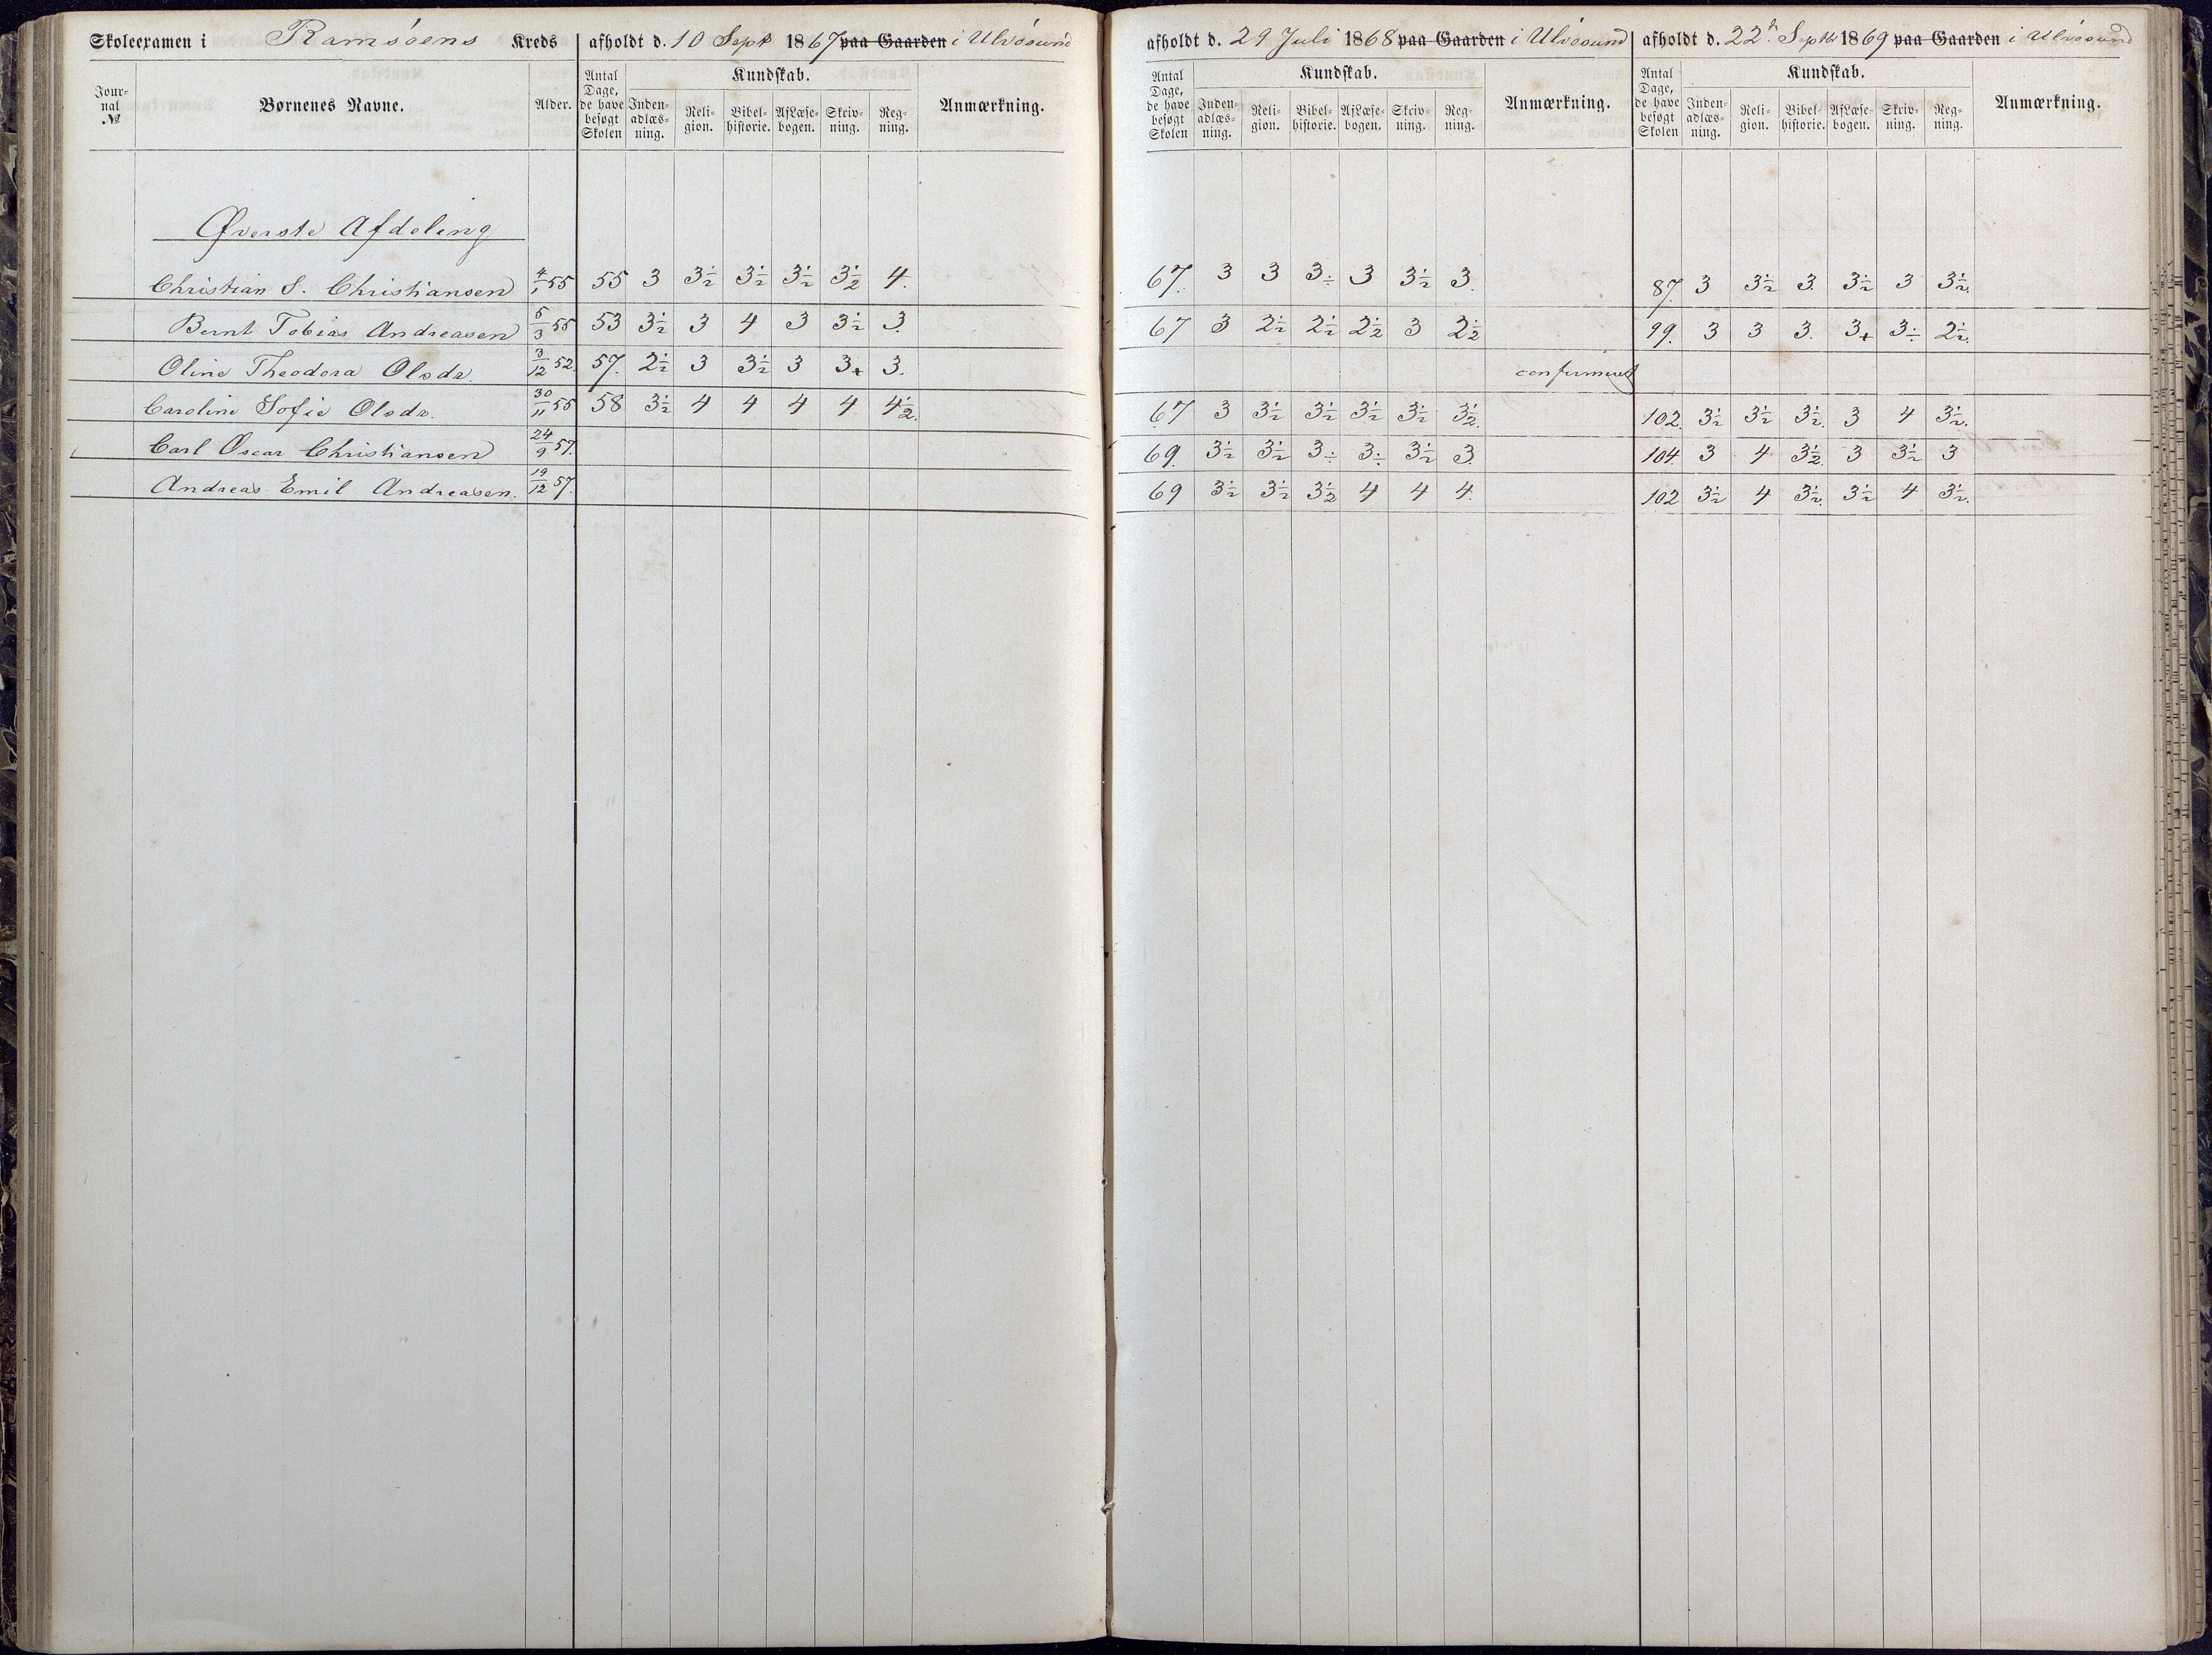 Skoleexamen i Ramsöens Kreds afholdt d. 10 Sept 1867 paa Gaarden i Ulvösund afholdt d. 29 Juli 1868 paa Gaarden i Ulvösund afholdt d. 22de Septbr 1869 paa Gaarden i Ulvösund
Jour-nal № Børnenes Navne. Alder. Antal Dage, de have besøgt Skolen Kundskab. Inden-adlæs-ning. Reli-gion. Bibel-historie. AfLæse-bogen. Skriv-ning. Reg-ning. Anmærkning. Antal Dage, de have besøgt Skolen Kundskab. Inden-adlæs-ning. Reli-gion. Bibel-historie. AfLæse-bogen. Skriv-ning. Reg-ning. Anmærkning. Antal Dage, de have besøgt Skolen Kundskab. Inden-adlæs-ning. Reli-gion. Bibel-historie. AfLæse-bogen. Skriv-ning. Reg-ning. Anmærkning.
Øverste Afdeling
Christian S. Christiansen 4/1 55 55 3 3½ 3½ 3½ 3½ 4. 67. 3 3 3÷ 3 3½ 3. 87. 3 3½ 3. 3½ 3 3½.
Bernt Tobias Andreasen 5/3 55 53 3½ 3 4 3 3½ 3. 67 3 2½ 2½ 2½ 3 2½ 99. 3 3 3. 3+ 3÷ 2½.
Oline Theodora Olsdr. 3/12 52. 57. 2½ 3 3½ 3 3+ 3. confirmeret
Caroline Sofie Olsdr. 30/11 55 58 3½ 4 4 4 4 4½. 67 3 3½ 3½ 3½ 3½ 3½. 102. 3½ 3½ 3½. 3 4 3½.
Carl Oscar Christiansen 24/9 57. 69. 3½ 3½ 3÷ 3÷ 3½ 3. 104. 3 4 3½. 3 3½ 3
Andreas Emil Andreasen. 19/12 57. 69 3½ 3½ 3½ 4 4 4. 102 3½ 4 3½. 3½ 4 3½.